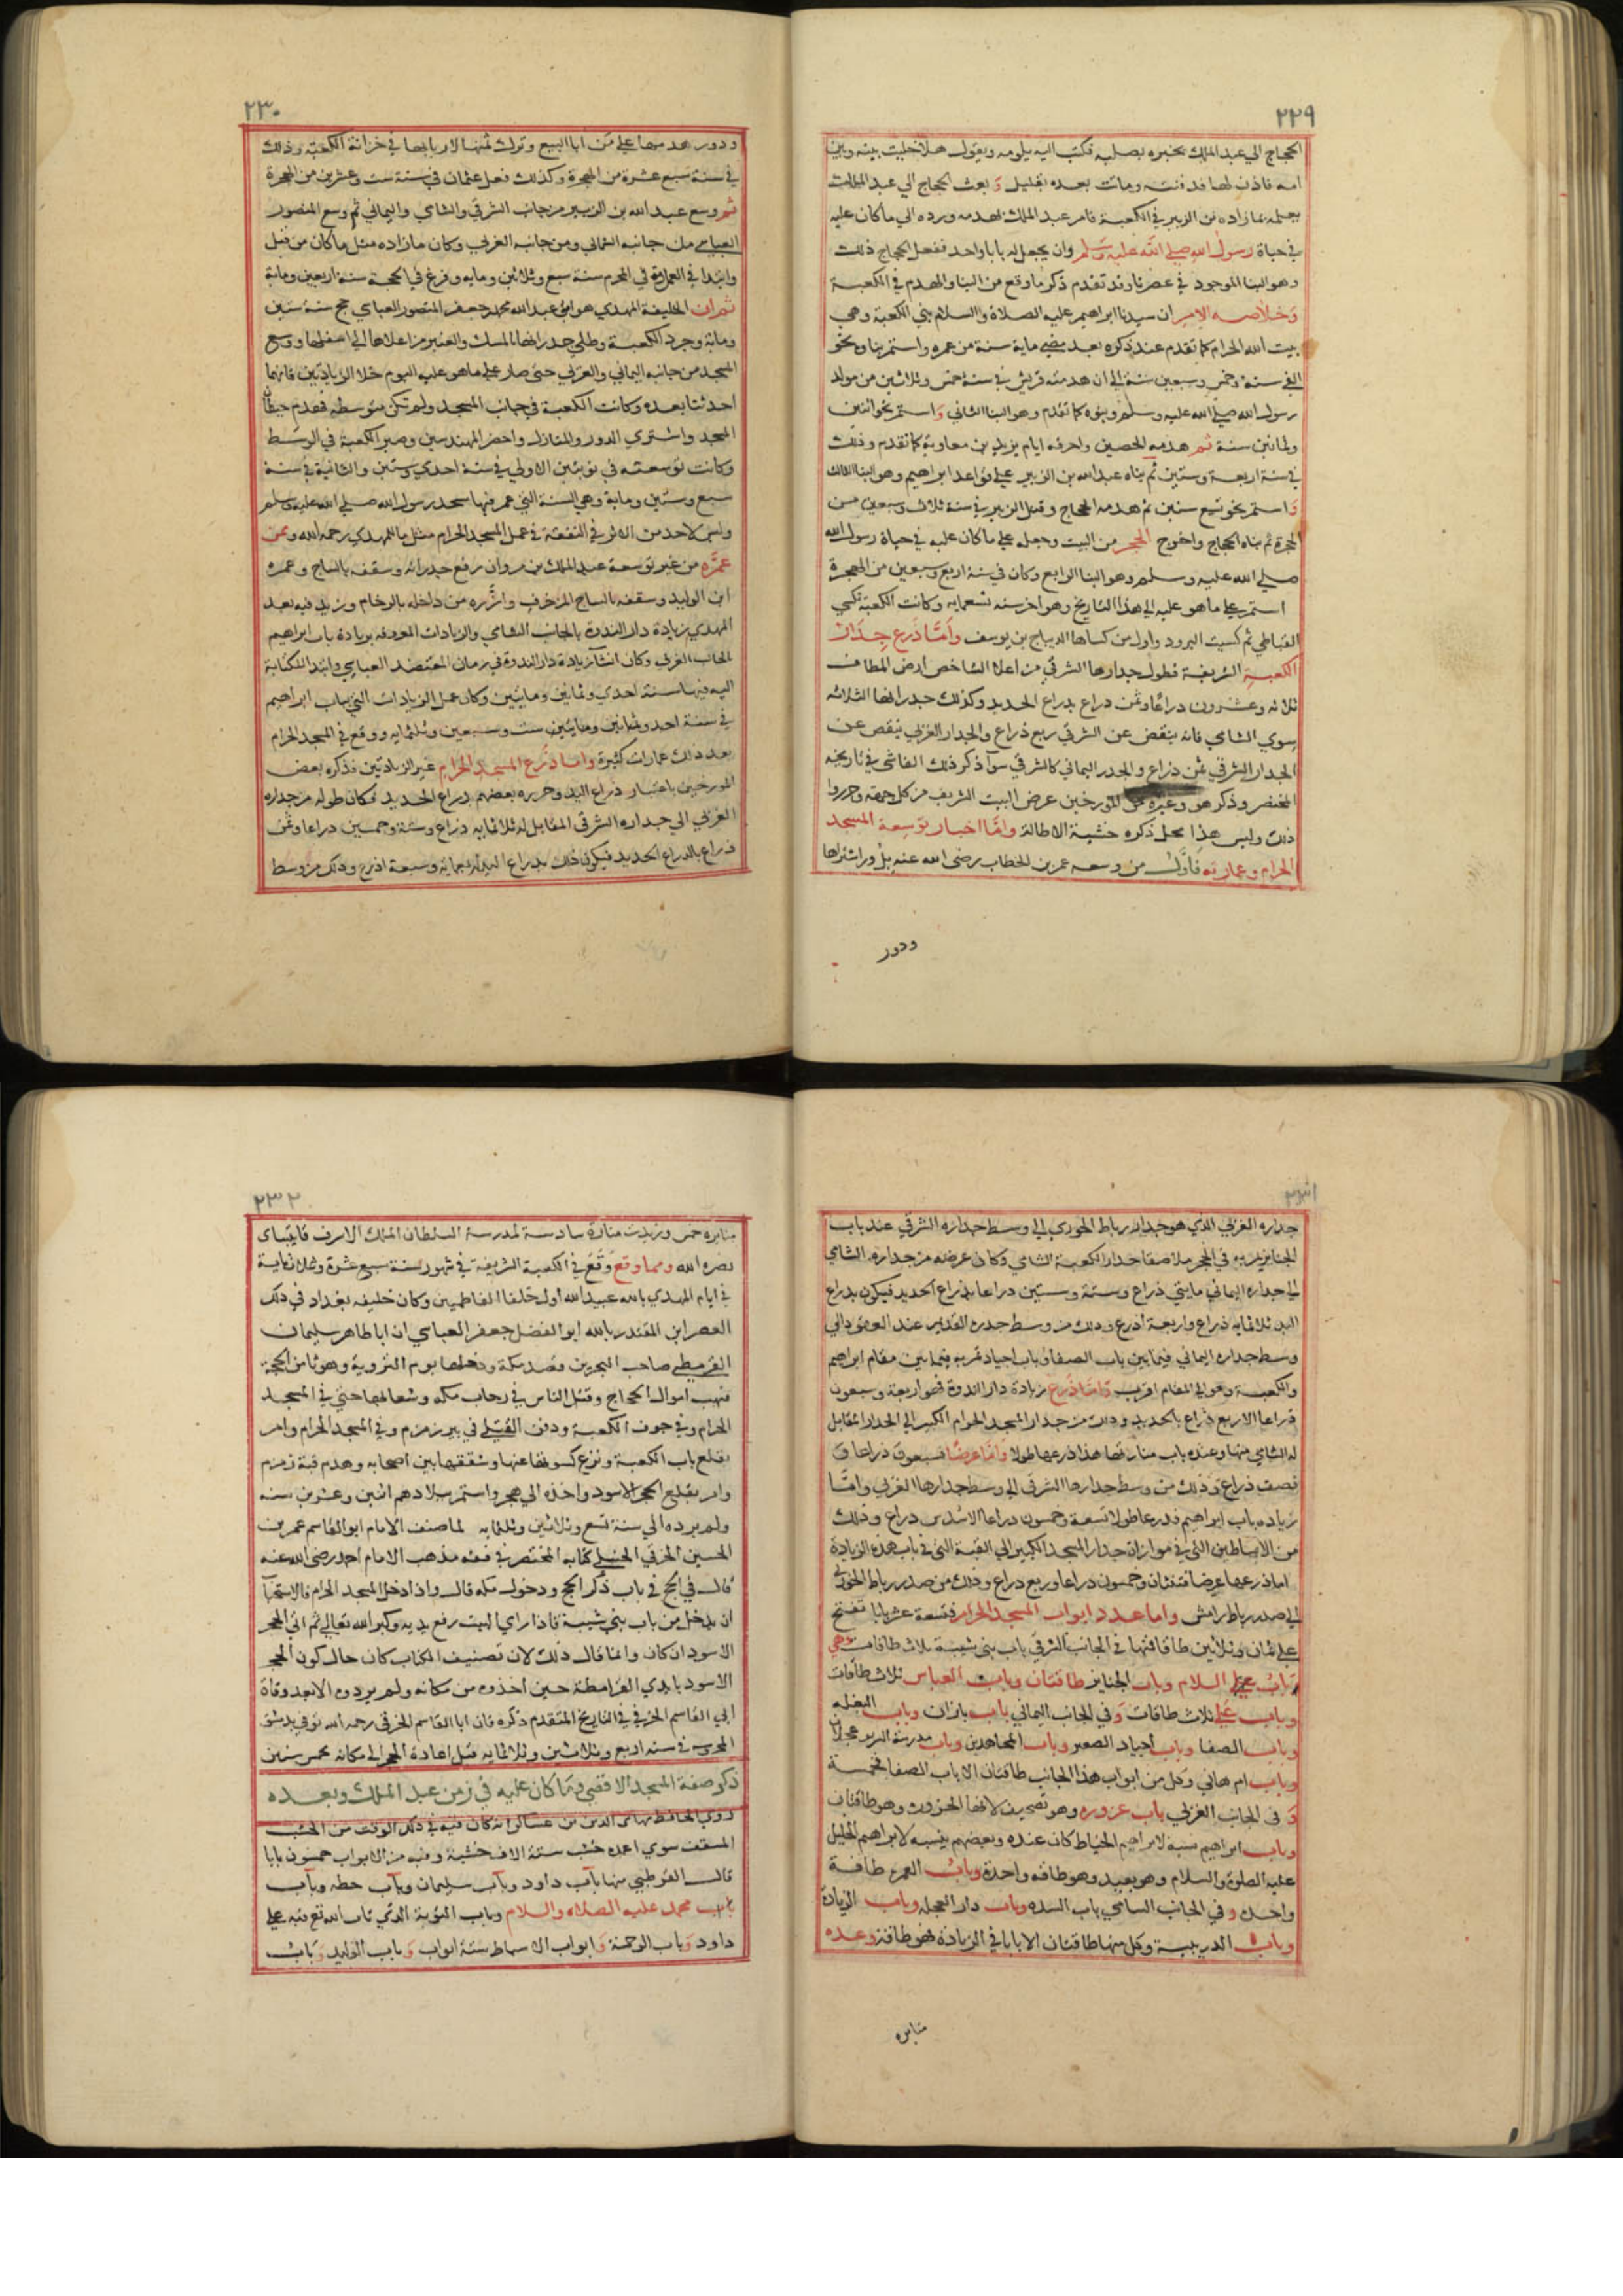 ٢٢٩
الحجاج الي عبد الملك يخبره بصلبه فكتب اليه يلومه ويقول هلا خليت بينه وبين
امه فاذن لها فدفنته وماتت بعده بقليل وبعث الحجاج الي عبد الملك
يعلمه بما زاده بن الزبير في الكعبة فامر عبد الملك بهدمه ورده الي ما كان عليه
في حياة رسول الله صلي الله عليه وسلم وان يجعل له بابا واحد ففعل الحجاج ذلك
وهو البنا الموجود في عصرنا وقد تقدم ذكر ما وقع من البنا والهدم في الكعبة
وخلاصه الامر ان سيدنا ابراهيم عليه الصلاة والسلام بني الكعبة وهي
بيت الله الحرام كما تقدم عند ذكره بعد مضي ماية سنة من عمره واستمر بناوه نحو
الفي سنة وخمس وسبعين سنة الي ان هدمته قريش في سنة خمس وثلاثين من مولد
رسول الله صلي الله عليه وسلم وبنوه كما تقدم وهو البنا الثاني واستمر نحو اثنين
وثمانين سنة ثم هدمه الحصين واحرقه ايام يزيد بن معاوية كما تقدم وذلك
في سنة اربعة وستين ثم بناه عبد الله بن الزبير علي قواعد ابراهيم وهو البنا الثالث
واستمر نحو تسع سنين ثم هدمه الحجاج وقتل الزبير في سنة ثلاث وسبعين من
الهجرة ثم بناه الحجاج واخرج الحجر من البيت وجعله علي ما كان عليه في حياة رسول الله
صلي الله عليه وسلم وهو البنا الرابع وكان في سنة اربع وسبعين من الهجرة
استمر علي ما هو عليه الي هذا التاريخ وهو اخر سنه تسعمايه وكانت الكعبة تكسي
القباطي ثم كسيت البرود واول من كساها الديباج بن يوسف وأمّا ذرع جدات
الكعبة الشريفة فطول جدارها الشرقي من اعلا الشاخص ارض المطاف
ثلاثه وعشرون دراعا وثمن دراع بدراع الحديد وكذلك جدرانها الثلاثه
سوي الشامي فانه ينقص عن الشرقي ربع ذراع والجدار الغربي ينقص عن
الجدار الشرقي ثمن ذراع والجدر اليماني كالشرقي سوآ ذكر ذلك الفاسي في تاريخه
المختصر وذكر هو وغيره من المورخين عرض البيت الشريف من كل جهته وحرروا
ذلك وليس هذا محل ذكره خشية الاطالة وامّا اخبار توسعة المسجد
الحرام وعمارته فاوّل من وسعه عمر بن الخطاب رضي الله عنه بدور اشتراها
ودور
٢٣٠
ودور هدمها علي من ابا البيع وترك ثمنها لاربابها في خزانة الكعبة وذلك
في سنة سبع عشرة من الهجرة وكذلك فعل عثمان في سنة ست وعشرين من الهجرة
ثم وسع عبد الله بن الزبير من جانب الشرقي والشامي واليماني ثم وسع المنصور
العباسي من جانبه الشمالي ومن جانبه الغربي وكان مازاده مثل ما كان من قبل
وابتدا في العمل في المحرم سنة سبع وثلاثين ومايه وفرغ في الحجة سنة اربعين وماية
ثم ان الخليفة المهدي هو ابو عبد الله محمد جعفر المنصور العباسي حج سنة ستين
وماية وجرد الكعبة وطلي جدرانها بالمسك والعنبر من اعلاها الي اسفلها ووسع
المسجد من جانبه اليماني والغربي حتي صار علي ما هو عليه اليوم خلا الزيادتين فانهما
احدثتا بعده وكانت الكعبة في جانب المسجد ولم تكن متوسطه فهدم حيطان
المسجد واشتري الدور والمنازل واحضر المهندسين وصير الكعبة في الوسط
وكانت توسعته في نوبتين الاولي في سنة احدي وستين والثانية في سنة
سبع وستين وماية وهي السنة التي عمر فيها مسجد رسول الله صلي الله عليه وسلم
وليس لاحد من الاثر في النفقة في عمل المسجد الحرام مثل ما للمهدي رحمه الله وممن
عمّره من غير توسعة عبد الملك بن مروان رفع جدرانه وسقفه بالساج وعمره
ابن الوليد وسقفه بالساج المزخرف وازّره من داخله بالرخام وزيد فيه بعد
المهدي زيادة دار الندوة بالجانب الشامي والزيادات المعروفه بزيادة باب ابراهيم
بالجانب الغربي وكان انشآ زيادة دار الندوة في زمان المعتضد العباسي وابتدا الكتابة
اليه فيها سنة احدي وثمانين ومايتين وكان عمل الزيادات التي بباب ابراهيم
في سنة احد وثمانين ومايتين ست وسبعين وثلثمايه ووقع في المسجد الحرام
بعد ذلك عمارات كثيرة واما ذرع المسجد الحرام غير الزيادتين فذكره بعض
المورخين باعتبار ذراع اليد وحرره بعضهم بدراع الحديد فكان طوله من جداره
الغربي الي جداره الشرقي المقابل له ثلاثمايه ذراع وستة وخمسين دراعا وثمن
ذراع بالدراع الحديد فيكون ذلك بدراع اليد اربعمائه وسبعة اذرع وذلك من وسط
٢٣١
جداره الغربي الذي هو جدار رباط الخوري الي وسط جداره الشرقي عند باب
الجنايز يمر به في الحجر ملاصقا جدار الكعبة الشامي وكان عرضه من جداره الشامي
الي جداره اليماني مايتي ذراع وستة وستين دراعا بذراع الحديد فيكون بدراع
اليد ثلاثمايه ذراع واربعة اذرع وذلك من وسط جدره القديم عند العمود الي
وسط جداره اليماني فيما بين باب الصفا وباب اجياد تمر به فيما بين مقام ابراهيم
والكعبة وهو الي المقام اقرب واما ذرع زيادة دار الندوة فهو اربعة وسبعون
ذراعا الا ربع ذراع بالحديد وذلك من جدار المسجد الحرام الكبير الي الجدار المقابل
له الشامي منها وعنده باب منارتها هذا ذرعها طولا واما عرضا فسبعون ذراعا و
نصف ذراع وذلك من وسط جدارها الشرقي الي وسط جدارها الغربي وامّا
زياده باب ابراهيم فذرعها طولا تسعة وخمسون دراعا الا سدس دراع وذلك
من الاساطين التي في موازاة جدار المسجد الكبير الي القبة التي في باب هذه الزيادة
اما ذرعها عرضا فثنتان وخمسون دراعا وربع دراع وذلك من صدر رباط الخوزي
الي صدر رباط رامشت واما عدد ابواب المسجد الحرام فتسعة عشر بابا تفتح
علي ثمان وثلاثين طاقا فمنها في الجانب الشرقي باب بني شيبة ثلاث طاقات وهي
باب السلام وباب الجنايز طاقتان وباب العباس ثلاث طاقات
وباب علي ثلاث طاقات وفي الجانب اليماني باب بازان وباب البغله
وباب الصفا وباب اجياد الصغير وباب المجاهدين وباب مدرسة الشريف عجلان
وباب ام هاني وكل من ابواب هذا الجانب طاقتان الا باب الصفا فخمسة
و في الجانب الغربي باب عزوره وهو تصحيف لانها الحزورة وهو طاقتان
وباب ابراهيم نسبة لابراهيم الخياط كان عنده وبعضهم ينسبه لابراهيم الخليل
عليه الصلوة والسلام وهو بعيد وهو طاقه واحدة وباب العمرة طاقة
واحدة وفي الجانب الشامي باب السده وباب دار العجله وباب الزيادة
وباب الدريبة وكل منها طاقتان الا بابا في الزيادة فهو طاقة وعده
منايره
٢٣٢
منايره خمس وزيدت منارة سادسة لمدرسة السلطان الملك الاشرف قايتباي
نصره الله ومما وقع وقع في الكعبة الشريفة في شهور سنة سبع عشرة وثلاثماية
في ايام المهدي بالله عبيد الله اول خلفا الفاطميين وكان خليفه بغداد في ذلك
العصر ابن المقتدر بالله ابو الفضل جعفر العباسي ان ابا طاهر سليمان
القرمطي صاحب البحرين قصد مكة ودخلها يوم التروية وهو ثامن الحجة
فنهب اموال الحجاج وقتل الناس في رحاب مكه وشعابها حتي في المسجد
الحرام وفي جوف الكعبة ودفن القتلي في بير زمزم وفي المسجد الحرام وامر
بقلع باب الكعبة ونزع كسوتها عنها وشققها بين اصحابه وهدم قبة زمزم
وامر بقلع الحجر الاسود واخذه الي هجر واستمر ببلادهم اثنين وعشرين سنه
ولم يرده الي سنة تسع وثلاثين وثلثمايه لما صنف الامام ابو القاسم عمر بن
الحسين الخرقي الحنبلي كتابه المختصر في فقه مذهب الامام احمد رضي الله عنه
قال في الحج في باب ذكر الحج ودخول مكه قال واذا دخل المسجد الحرام فالاستحباب
ان يدخل من باب بني شيبة فاذا راي البيت رفع يديه وكبر الله تعالي ثم اتي الحجر
الاسود ان كان وانما قال ذلك لان تصنيف الكتاب كان حال كون الحجر
الاسود بايدي القرامطة حين اخذوه من مكانه ولم يردوه الا بعد وفاة
ابي القاسم الخرقي في التاريخ المتقدم ذكره فان ابا القاسم الخرقي رحمه الله توفي بدمشق
المحروسه في سنه اربع وثلاثين وثلاثمايه قبل اعادة الحجر الي مكانه بخمس سنين
ذكر صفة المسجد الاقصي وما كان عليه في زمن عبد الملك وبعده
روي الحافظ بهاء الدين بن عساكر انه كان فيه في ذلك الوقت من الخشب
المسقف سوي اعمده خشب ستة الاف خشبة وفيه من الابواب خمسون بابا
قال القرطبي منها باب داود وباب سليمان وباب حطه وباب
محمد عليه الصلاه والسلام وباب التوبة الذي تاب الله تع فيه علي
داود وباب الرحمة وابواب الاسباط ستة ابواب وباب الوليد وباب